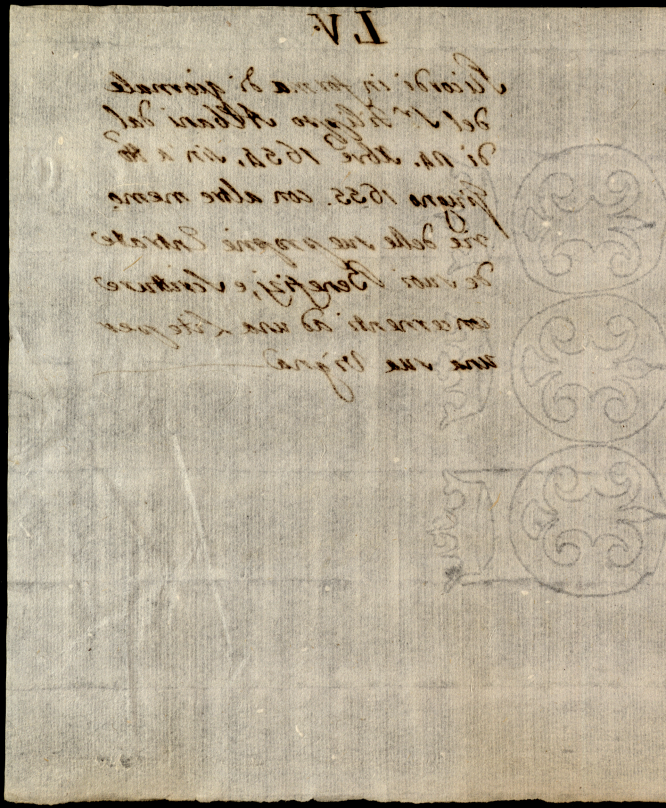 L V.
Ricordi in forma di giornale
del Sr. Albani dal
di 14. Xbre 1654. sin a
Giugno 1655. con altre memo
rie delle sue proprie Entrate
de suoi Benefizj, e Scritture
concernenti ad una Lite per
una sua Vigna